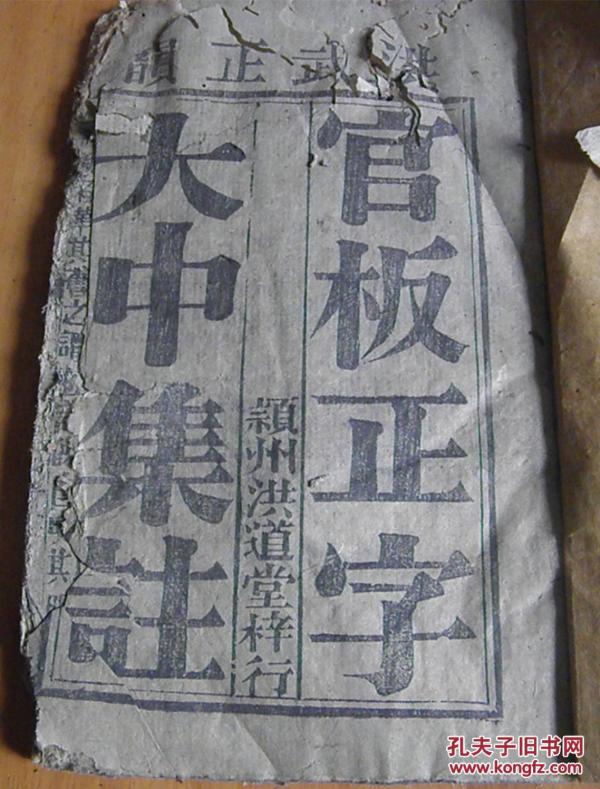 洪武正韻
官板正字
潁州洪道堂梓行
大中集註
孔夫子旧书网
www.kongfz.com